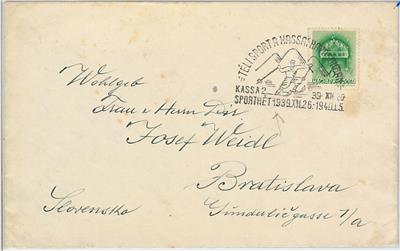 TÉLI SPORT A KASSAI
KASSA 2 39 XII 29
SPORTHÉT 1939.XII.26.-1940.I.5.
Wohlgeb
Frau u Herrn Dir
Josef Weidl
Bratislava
Slovensko Gunduličgasse 1/a